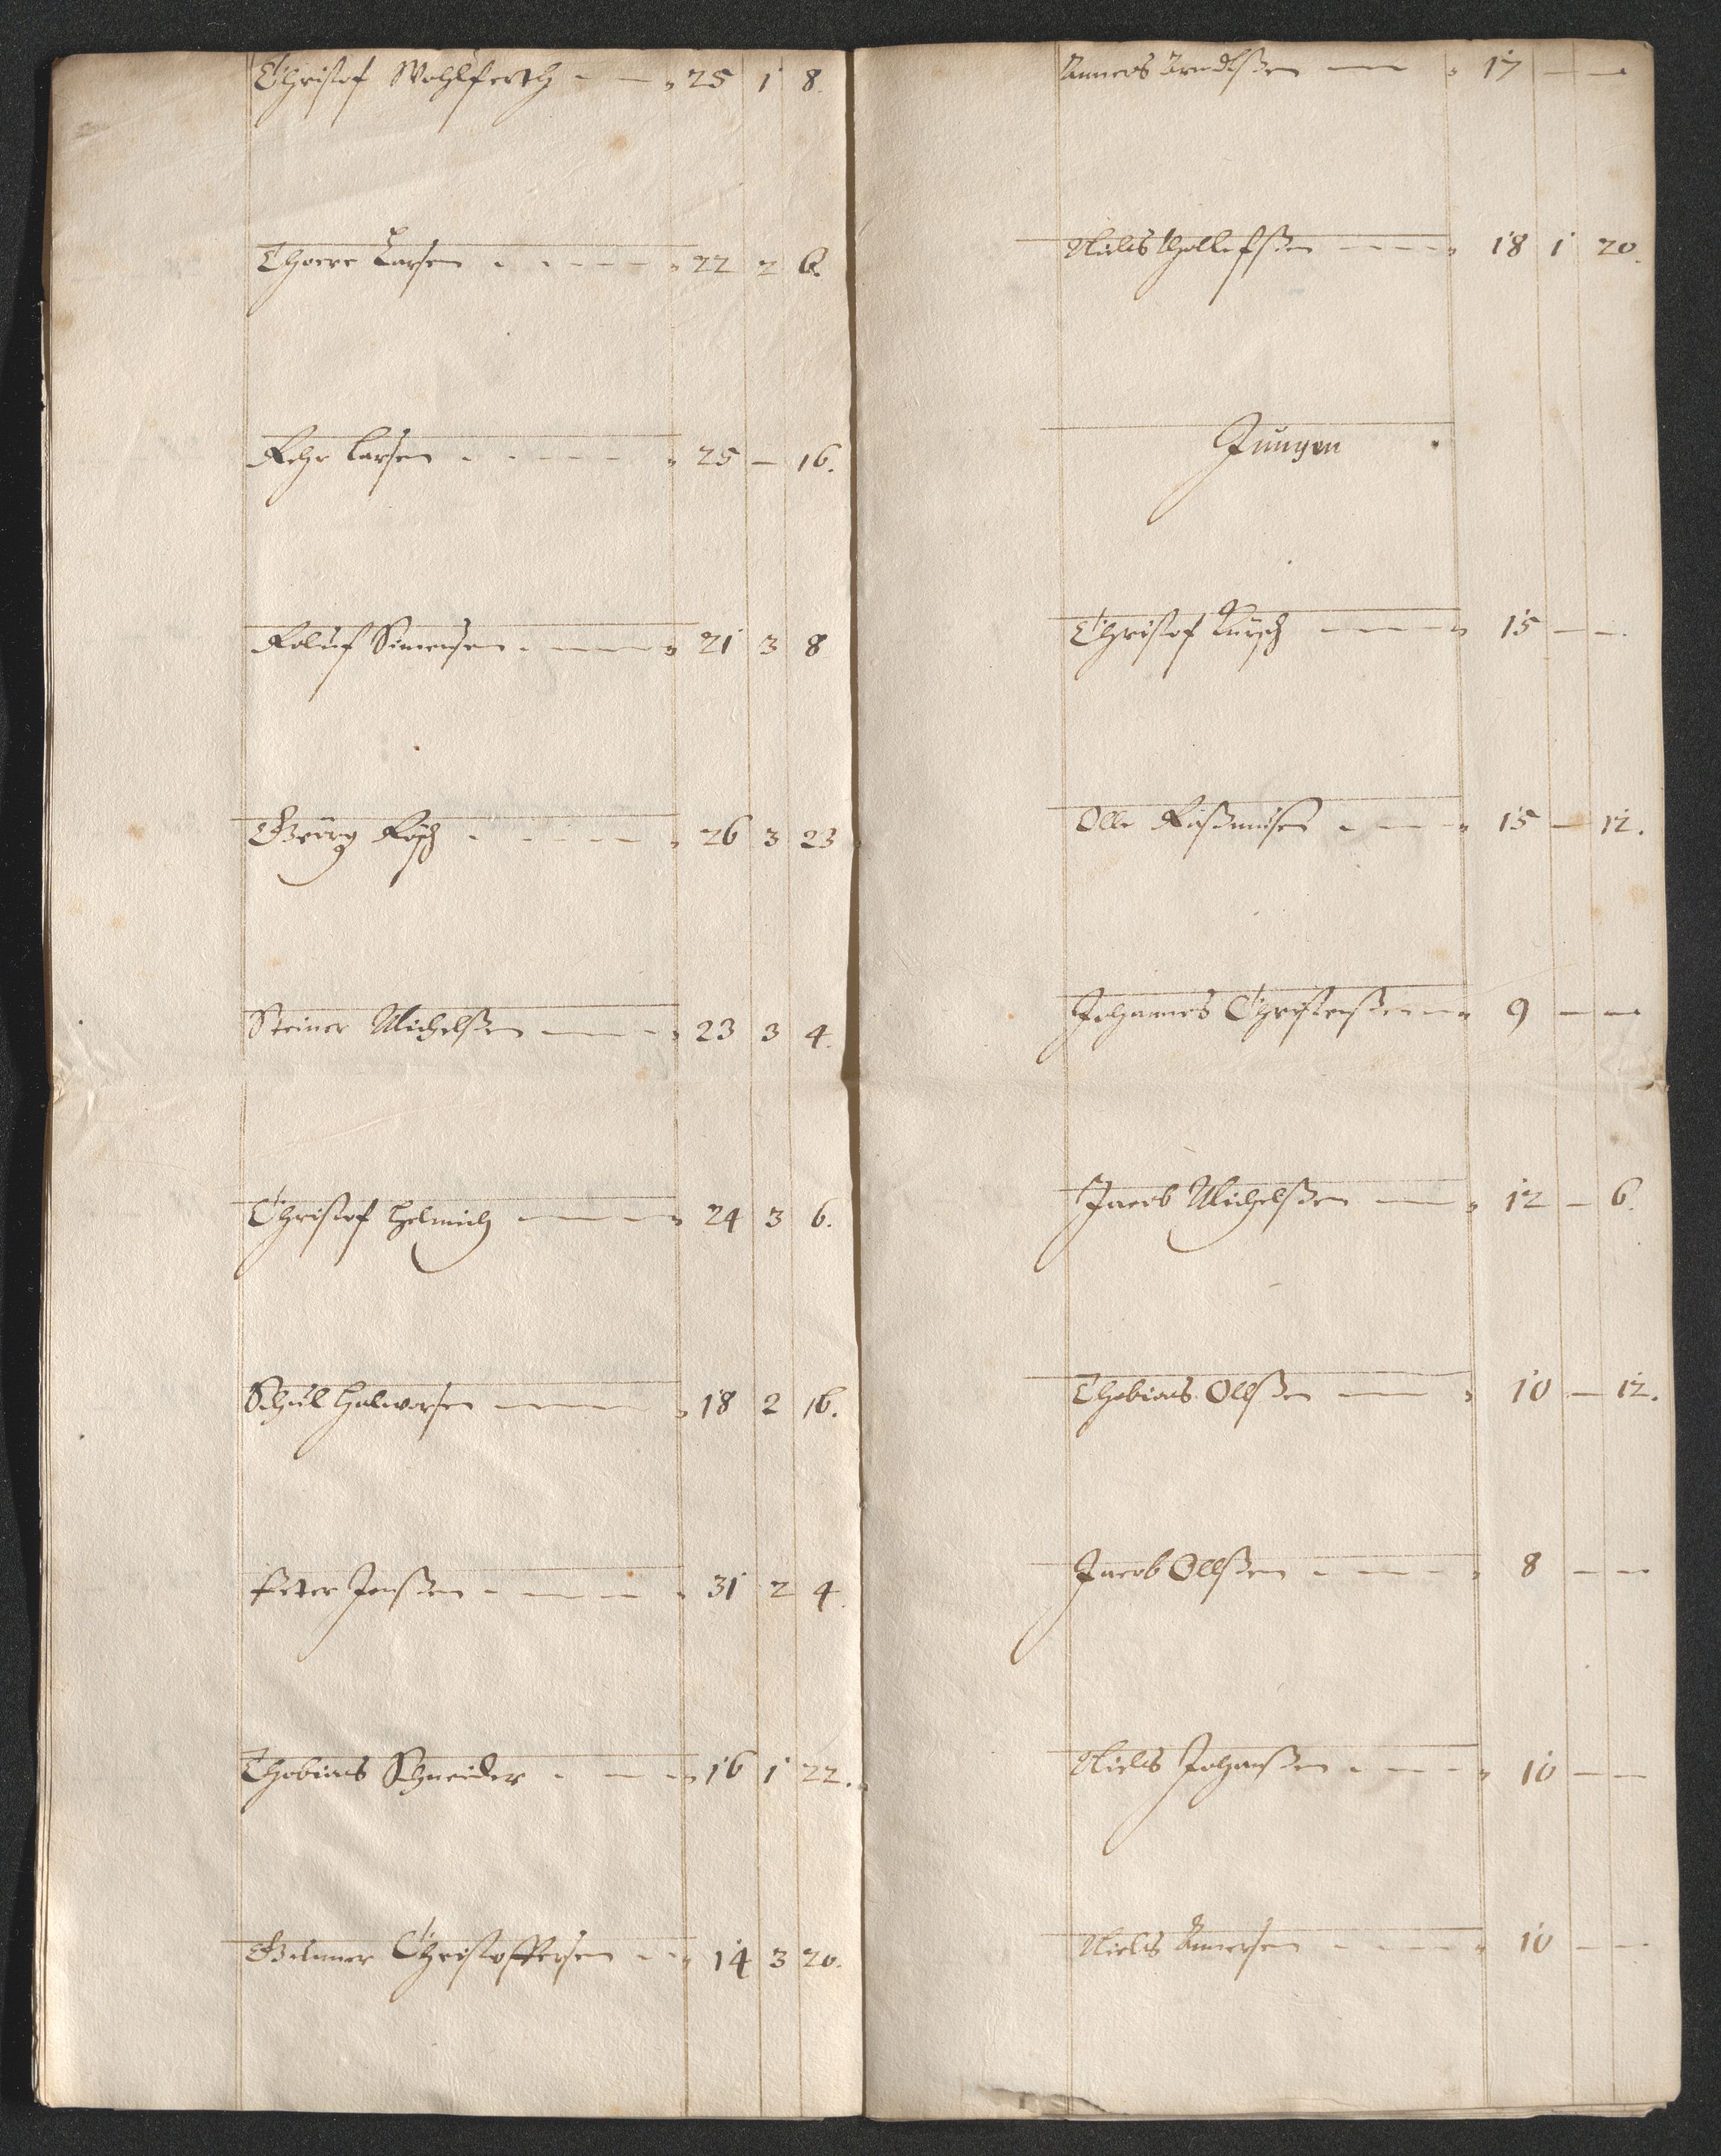 Christof Wohlferth - — „ 25 1 8.
Thoere Larsen - - - - - „ 22 2 6.
Rehr Larsen - - - - - „ 25 — 16.
Roluf Simensen - — — — „ 21 3 8
Georg Rösch - - - — — „ 26 3 23
Steiner Michelßen — — - „ 23 3 4.
Christof Helmich — — — „ 24 3 6.
Schul Halworsen — — — „ 18 2 16.
Peter Jenßen - — — — „ 31 2 4.
Thobias Schneider - — - „ 16 1 22.
Gunner Christoffersen - - „ 14 3 20.
Anners Arndtßen — — „ 17 — —
Niels Thollefßen - - - - „ 18 1 20.
Jungen
Christof - - - - „ 15 — —.
Olle Raßmusen - — - „ 15 — 12.
Johannes Christenßen - „ 9 — —
Jacob Michelßen — — „ 12 — 6.
Thobias Ollßen — — „ 10 — 12.
Jacob Ollßen - — — - „ 8 — —
Niels Johanßen - — - - „ 10 — —
Niels Annersen - - - - „ 10 — —